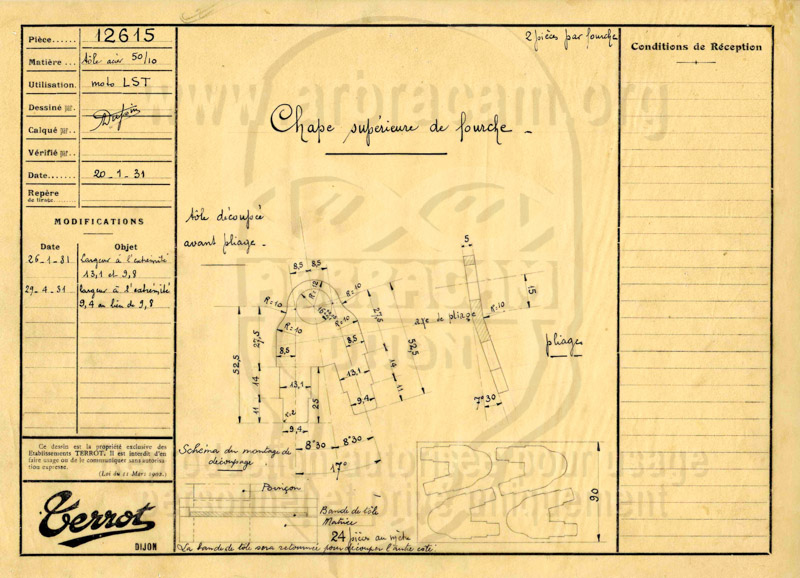 Pièce...... 12615
Matière... tôle acier 50/10
Utilisation. moto LST
Dessiné par.
Calqué par..
Vérifié par..
Date....... 20-1-31
Repère
de tirage.
MODIFICATIONS
Date Objet
26-1-31 Largeur à l'extrémité
13,1 et 9,8
29-4-31 Largeur à l'extrémité
9,4 au lieu de 9,8
Ce dessin est la propriété exclusive des
Etablissements TERROT. Il est interdit d'en
faire usage ou de le communiquer sans autorisa
tion expresse.
(Loi du 11 Mars 1902.)
Terrot
DIJON
2 pièces par fourche
Chape supérieure de fourche -
tôle découpée
avant pliage -
8,5 8,5
R=10
R=10
R=10
R=10
52,5
27,5
14
11
8,5
8,5
13,1
13,1
25
R=2
9,4
9,4
27,5
14
11
52,5
8°30
8°30
17°
5
15
R=10
axe de pliage
pliages
7°30
Schéma du montage de
découpage
Poinçon
Bande de tôle
Matrice
24 pièces au mètre
90
La bande de tôle sera retournée pour découper l'autre côté.
Conditions de Réception
www.arbracam.org
ARBRACAM